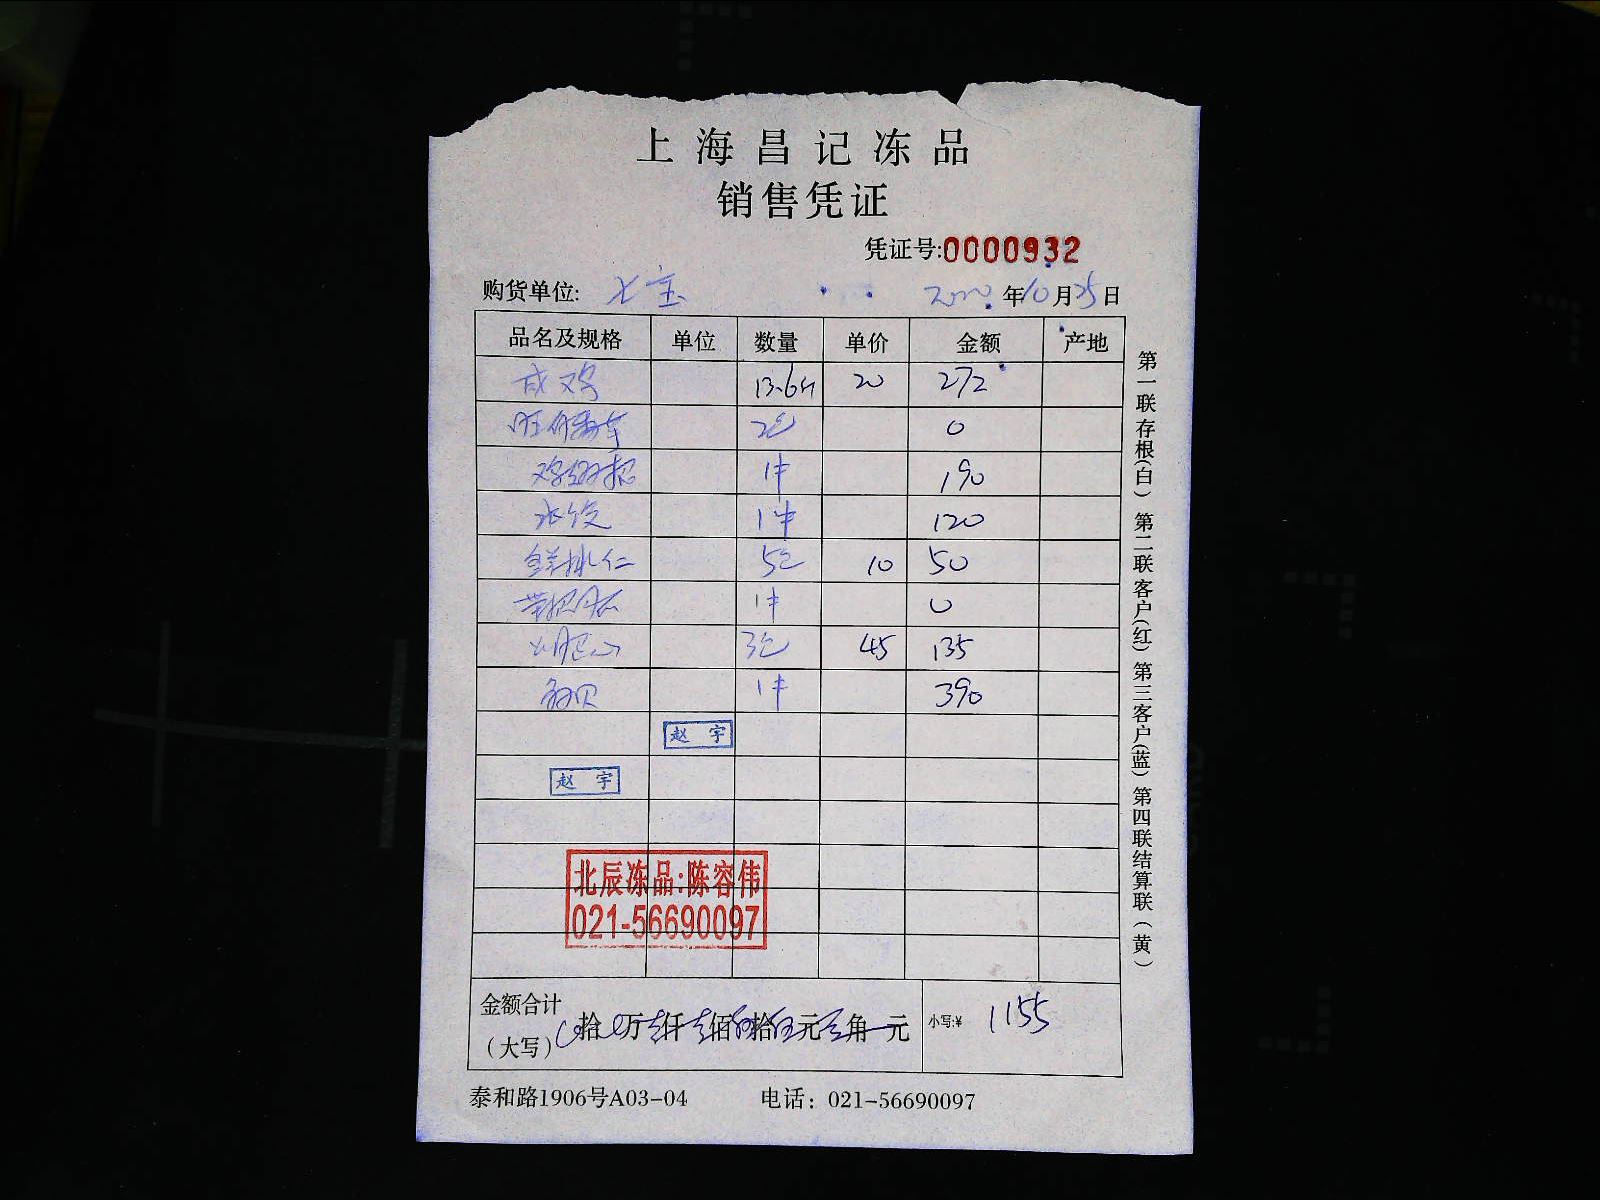 上海昌记冻品
销售凭证
凭证号:0000932
购货单位: 七宝 2020年10月25日
品名及规格 单位 数量 单价 金额 产地
成鸡 13.6斤 20 272
2包 0
1件 190
水饺 1件 120
5包 10 50
1件 0
3包 45 135
1件 390
赵宇
赵宇
北辰冻品:陈容伟
021-56690097
金额合计
(大写) 拾 万 仟 佰 拾 元 角 元 小写:¥ 1155
泰和路1906号A03-04 电话: 021-56690097
第一联存根(白) 第二联客户(红) 第三客户(蓝) 第四联结算联(黄)